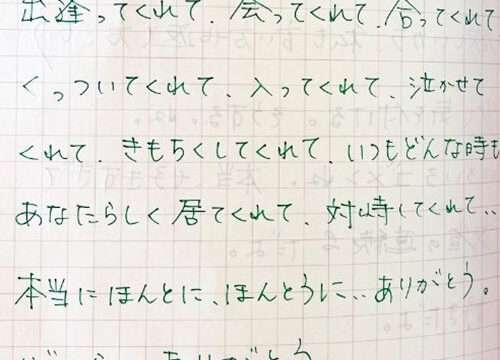 出逢ってくれて、会ってくれて、合ってくれて
くっついてくれて、入ってくれて、泣かせて
くれて、きもちくしてくれて、いつもどんな時も
あなたらしく居てくれて、対峙してくれて、、
本当にほんとに、ほんとうに、、ありがとう。
ありがとう